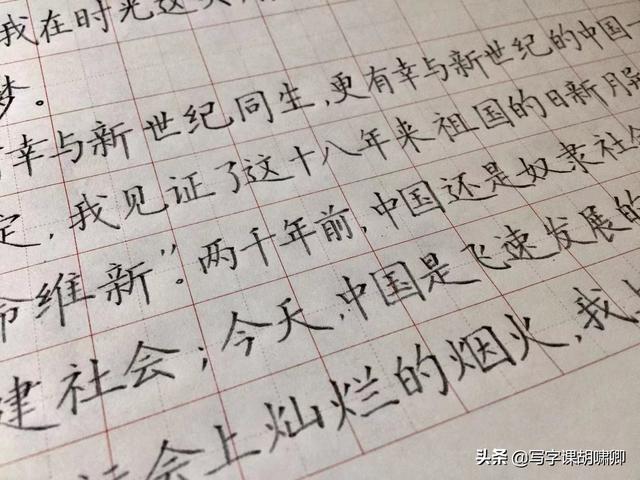 我在时光这
梦。
幸与新世纪同生，更有幸与新世纪的中国一
定，我见证了这十八年来祖国的日新月异
命维新”。两千年前，中国还是奴隶社会
建社会；今天，中国是飞速发展的
社会上灿烂的烟火，我
头条 @写字课胡啸卿